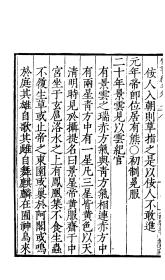 佞人入朝則草指之是以佞人不敢進
元年帝即位居有熊初制冕服
二十年景雲見以雲紀官
有景雲之瑞赤方氣與青方氣相連赤方中
有兩星青方中有一星凡三星皆黄色以天
清明時見於攝提名曰景星帝黄服齋于中
宫坐于玄扈洛水之上有鳳凰集不食生蟲
不履生草或止帝之東園或巢於阿閣或鳴
於庭其雄自歌其雌自舞麒麟在囿神鳥來